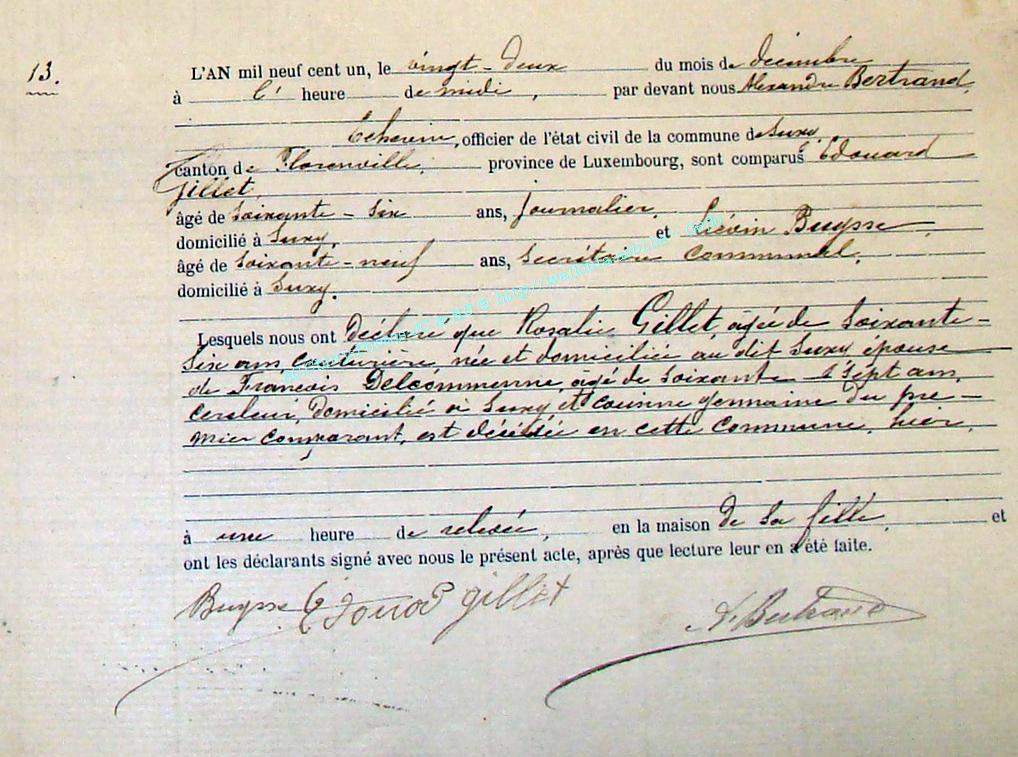 13.
L'AN mil neuf cent un, le vingt-deux du mois de décembre
à l' heure de midi, par devant nous Alexandre Bertrand,
Echevin, officier de l'état civil de la commune de Suxy,
canton de Florenville, province de Luxembourg, sont comparus Edouard
Gillet
âgé de soixante-six ans, journalier,
domicilié à Suxy, et Liévin Buysse,
âgé de soixante-neuf ans, Secrétaire Communal,
domicilié à Suxy.
Lesquels nous ont déclaré que Rosalie Gillet, âgée de soixante-
six ans, couturière, née et domiciliée au dit Suxy, épouse
de François Delcommenne, âgé de soixante sept ans,
domicilié à Suxy, et cousine germaine du pre-
mier comparant, est décédée en cette commune, hier,
à une heure de relevée, en la maison de sa fille, et
ont les déclarants signé avec nous le présent acte, après que lecture leur en a été faite.
Buysse Edouod gillet
A. Bertrand